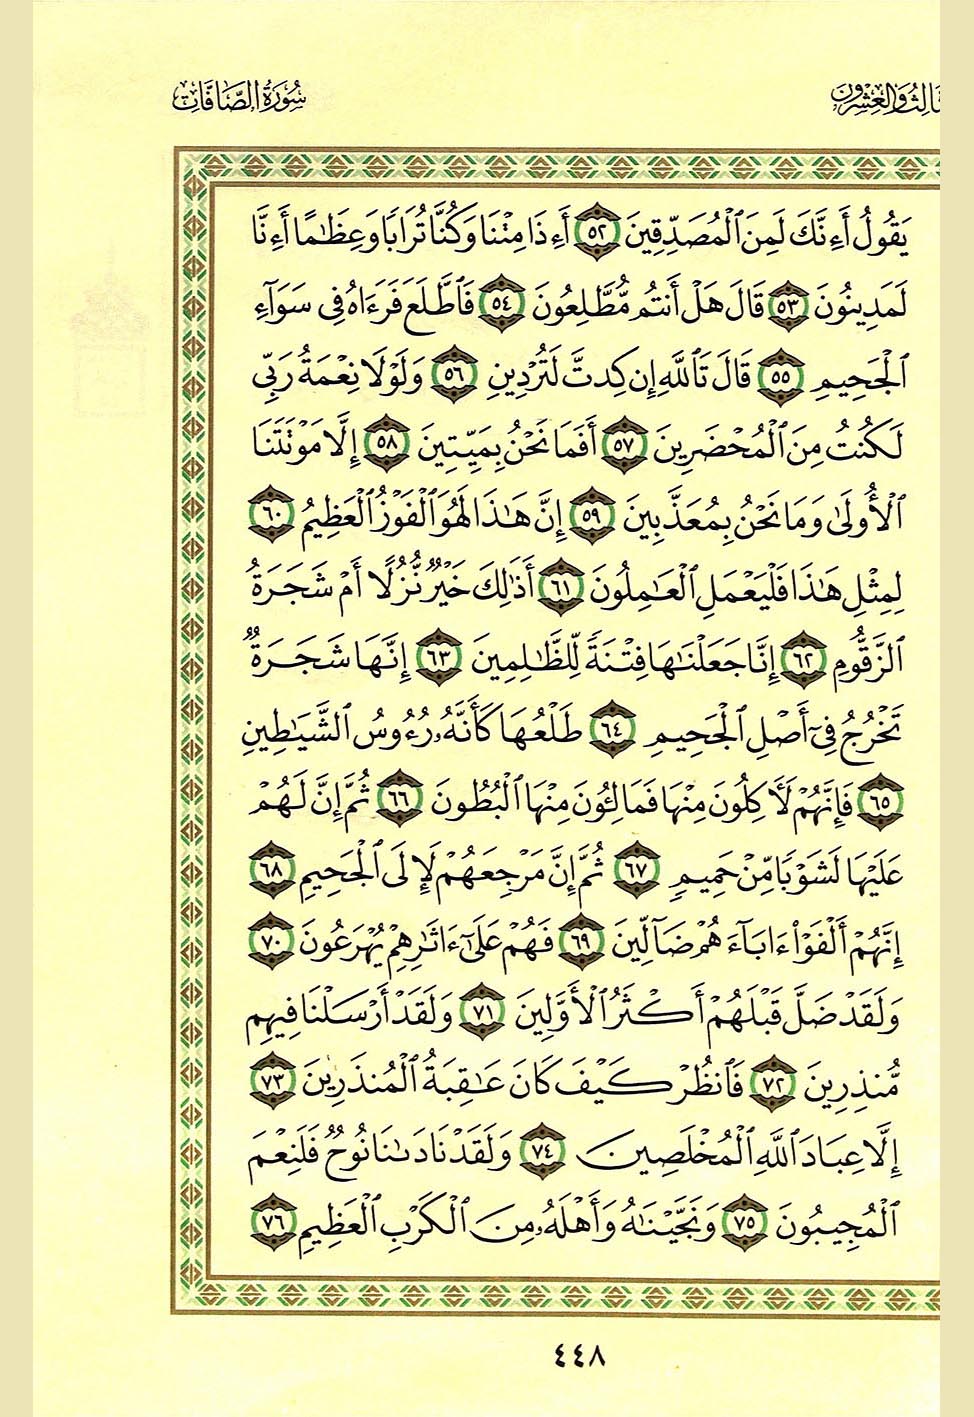 ثالث والعشرون
سورة الصافات
يَقُولُ أَءِنَّكَ لَمِنَ ٱلْمُصَدِّقِينَ ٥٢ أَءِذَا مِتْنَا وَكُنَّا تُرَابًا وَعِظَٰمًا أَءِنَّا
لَمَدِينُونَ ٥٣ قَالَ هَلْ أَنتُم مُّطَّلِعُونَ ٥٤ فَٱطَّلَعَ فَرَءَاهُ فِى سَوَآءِ
ٱلْجَحِيمِ ٥٥ قَالَ تَٱللَّهِ إِن كِدتَّ لَتُرْدِينِ ٥٦ وَلَوْلَا نِعْمَةُ رَبِّى
لَكُنتُ مِنَ ٱلْمُحْضَرِينَ ٥٧ أَفَمَا نَحْنُ بِمَيِّتِينَ ٥٨ إِلَّا مَوْتَتَنَا
ٱلْأُولَىٰ وَمَا نَحْنُ بِمُعَذَّبِينَ ٥٩ إِنَّ هَٰذَا لَهُوَ ٱلْفَوْزُ ٱلْعَظِيمُ ٦٠
لِمِثْلِ هَٰذَا فَلْيَعْمَلِ ٱلْعَٰمِلُونَ ٦١ أَذَٰلِكَ خَيْرٌ نُّزُلًا أَمْ شَجَرَةُ
ٱلزَّقُّومِ ٦٢ إِنَّا جَعَلْنَٰهَا فِتْنَةً لِّلظَّٰلِمِينَ ٦٣ إِنَّهَا شَجَرَةٌ
تَخْرُجُ فِىٓ أَصْلِ ٱلْجَحِيمِ ٦٤ طَلْعُهَا كَأَنَّهُۥ رُءُوسُ ٱلشَّيَٰطِينِ
٦٥ فَإِنَّهُمْ لَءَاكِلُونَ مِنْهَا فَمَالِـُٔونَ مِنْهَا ٱلْبُطُونَ ٦٦ ثُمَّ إِنَّ لَهُمْ
عَلَيْهَا لَشَوْبًا مِّنْ حَمِيمٍ ٦٧ ثُمَّ إِنَّ مَرْجِعَهُمْ لَإِلَى ٱلْجَحِيمِ ٦٨
إِنَّهُمْ أَلْفَوْا۟ ءَابَآءَهُمْ ضَآلِّينَ ٦٩ فَهُمْ عَلَىٰٓ ءَاثَٰرِهِمْ يُهْرَعُونَ ٧٠
وَلَقَدْ ضَلَّ قَبْلَهُمْ أَكْثَرُ ٱلْأَوَّلِينَ ٧١ وَلَقَدْ أَرْسَلْنَا فِيهِم
مُّنذِرِينَ ٧٢ فَٱنظُرْ كَيْفَ كَانَ عَٰقِبَةُ ٱلْمُنذَرِينَ ٧٣
إِلَّا عِبَادَ ٱللَّهِ ٱلْمُخْلَصِينَ ٧٤ وَلَقَدْ نَادَىٰنَا نُوحٌ فَلَنِعْمَ
ٱلْمُجِيبُونَ ٧٥ وَنَجَّيْنَٰهُ وَأَهْلَهُۥ مِنَ ٱلْكَرْبِ ٱلْعَظِيمِ ٧٦
٤٤٨